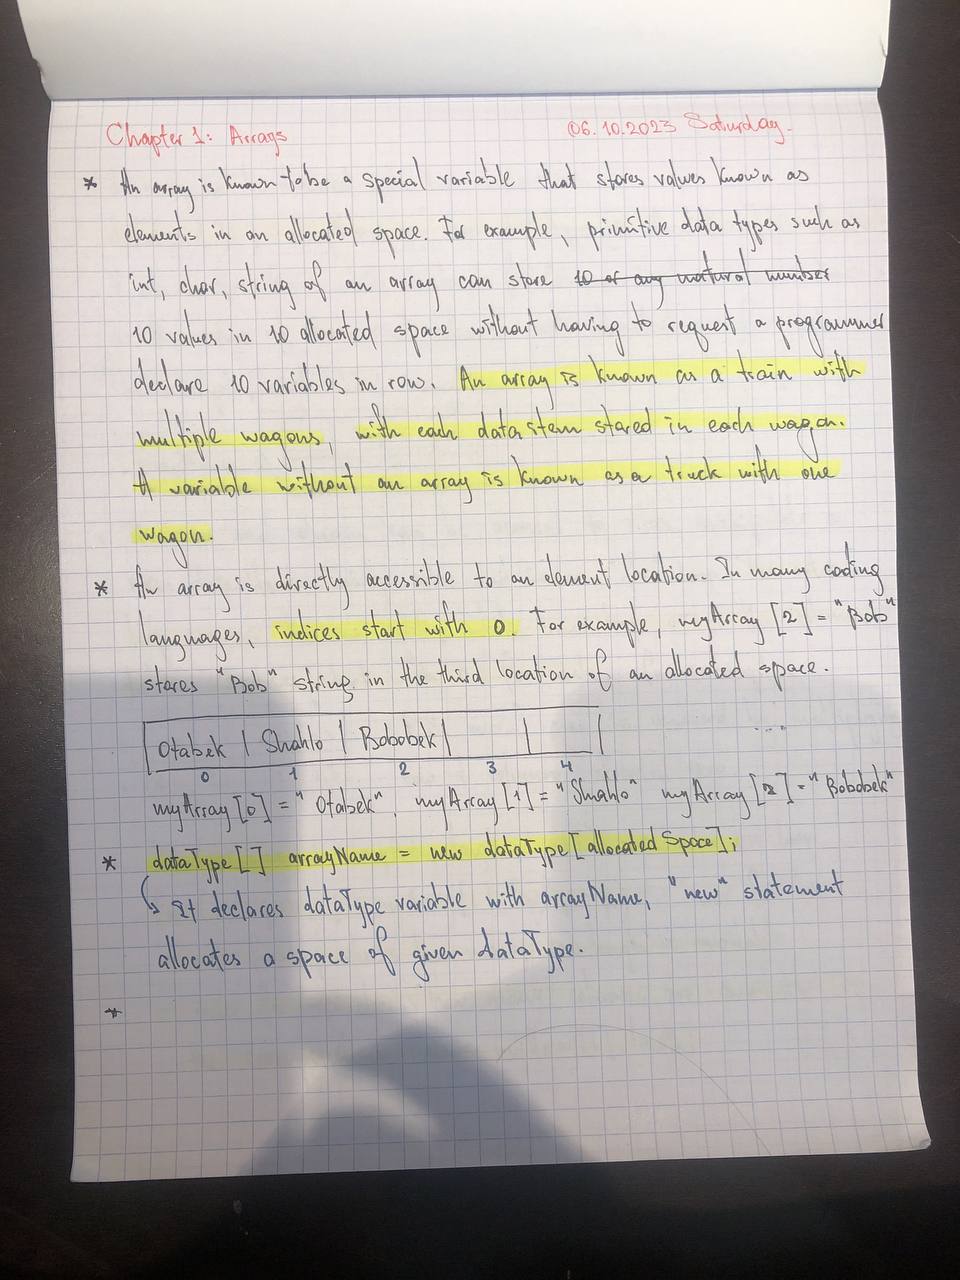 Chapter 1: Arrays 06.10.2023 Saturday.
* An array is known to be a special variable that stores values known as
elements in an allocated space. For example, primitive data types such as
int, char, string of an array can store 10 or any natural number
10 values in 10 allocated space without having to request a programmer
declare 10 variables in row. An array is known as a train with
multiple wagons, with each data stored in each wagon.
A variable without an array is known as a truck with one
wagon.
* An array is directly accessible to an element location. In many coding
languages, indices start with 0. For example, myArray [2] = "Bob"
stores "Bob" string in the third location of an allocated space.
Otabek | Shahlo | Bobobek | | | ...
0 1 2 3 4
myArray [0] = "Otabek", myArray [1] = "Shahlo" myArray [2] = "Bobobek"
* dataType [ ] arrayName = new dataType [allocated Space];
It declares dataType variable with arrayName, "new" statement
allocates a space of given dataType.
*